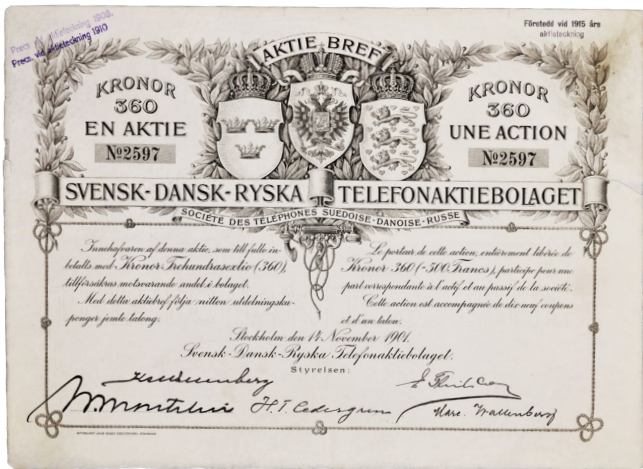 Prec. vid aktieteckning 1908.
Prec. vid aktieteckning 1910
Företedd vid 1915 års
aktieteckning
AKTIE BREF
KRONOR
360
EN AKTIE
No 2597
KRONOR
360
UNE ACTION
No 2597
SVENSK-DANSK-RYSKA TELEFONAKTIEBOLAGET
SOCIÉTÉ DES TÉLÉPHONES SUEDOISE-DANOISE-RUSSE
Innehafvaren af denna aktie, som till fullo in-
betalts med Kronor Trehundrasextio (360),
tillförsäkras motsvarande andel i bolaget.
Med detta aktiebref följa nitton utdelningsku-
ponger jemte talong.
Le porteur de cette action, entièrement libérée de
Kronor 360 (=500 Francs), participe pour une
part correspondante à l'actif et au passif de la société.
Cette action est accompagnée de dix neuf coupons
et d'un talon.
Stockholm den 14 November 1901.
Svensk-Dansk-Ryska Telefonaktiebolaget.
Styrelsen:
H. T. Cedergren
Marc. Wallenberg